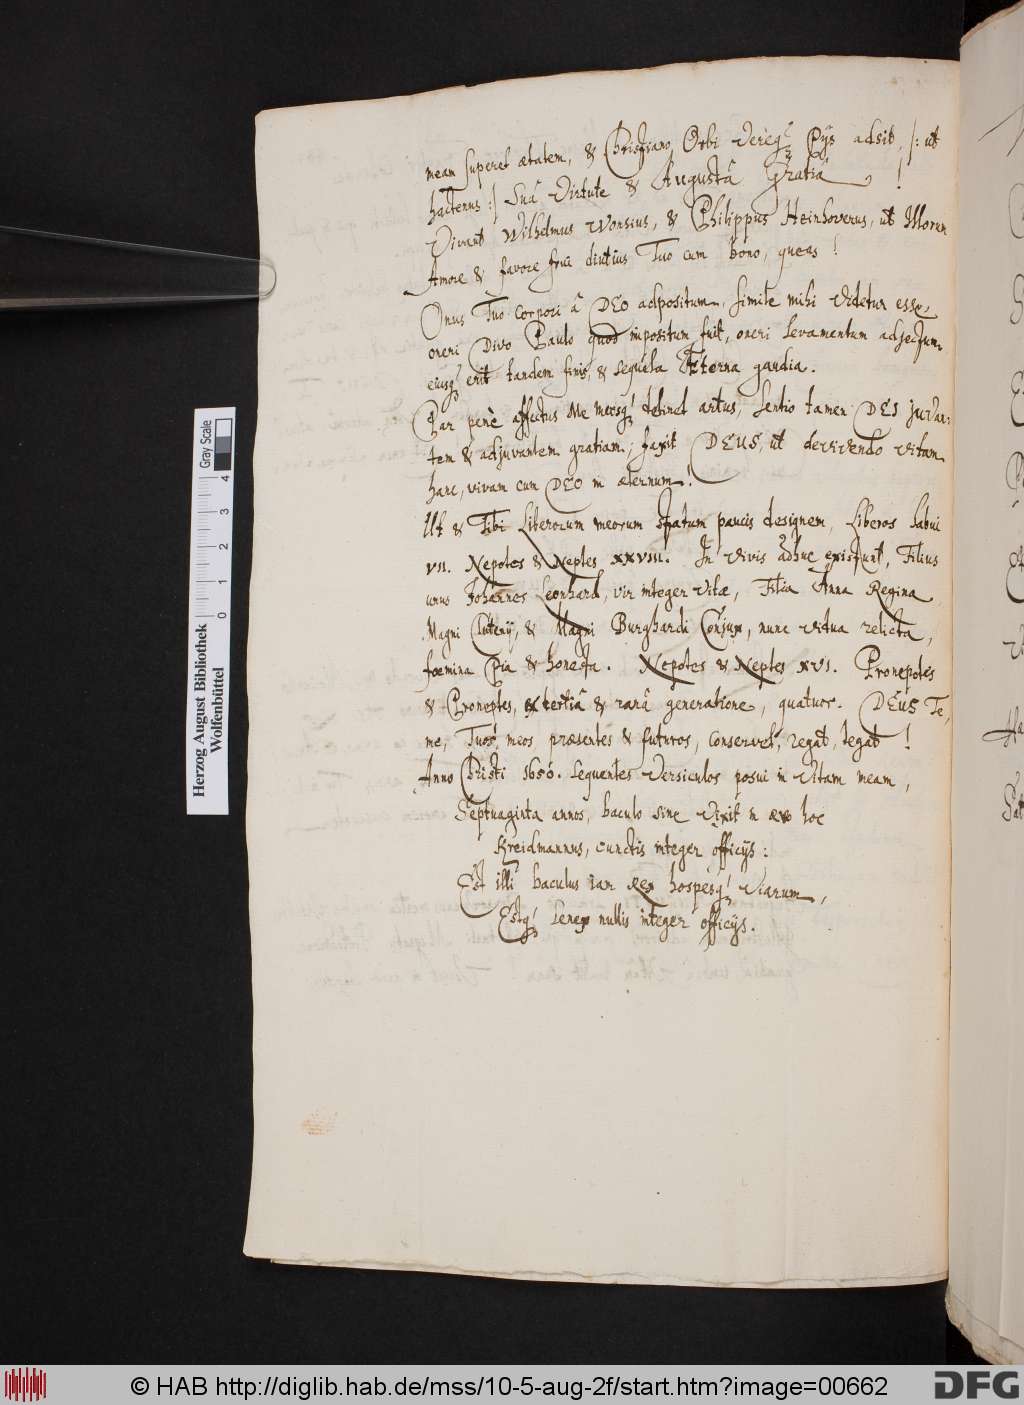 meam superet ætatem, & Christiano Orbi Vereq́; Pijs adsit, /: ut
hactenus :/ Suâ Virtute & Augustâ Gratiâ !
Vivant Wilhelmus Wonsius, & Philippus Heinhoverus, ut Illorum
Amore & favore frui diutius Tuo cum bono, queas !
Onus Tuo corpori â DEO adpositum, simile mihi videtur esse,
oneri Divo Paulo quod impositum fuit, oneri levamentum adjectum,
eiusq́; erit tandem finis, & sequela Æterna gaudia.
Par penè affectus Me meosq́; tehnet artus, sentio tamen DEI juvan-
tem & adjuvantem gratiam; faxit DEUS, ut devivendo vitam
hanc, vivam cum DEO in æternum !
Ut & Tibi Literorum meorum statum paucis designem, Liberos habui
VII. Nepotes & Neptes XXVIII. In vivis adhuc existunt, Filius
unus Johannes Leonhard, vir integer vitæ, Filia Anna Regina
Magni & Magni Burghardi Conjux, nunc vidua relicta,
fœmina Pia & honesta. Nepotes & Neptes XVI. Pronepotes
& Proneptes, ex tertiâ & rarâ generatione, quatuor. DEUS Te,
me, Tuos, meos, præsentes & futuros, conservet, regat, tegat !
Anno Christi 1656. sequentes Versiculos posui in vitam meam,
Septuaginta annos, baculo sine vixit in ævo hoc
Kreidmannus, cunctis integer officijs :
Est illi baculus iam rex hospesq́; viarum,
Estq́; senex nullis integer officijs.
Herzog August Bibliothek
Wolfenbüttel
0 1 2 3 4
Gray Scale
© HAB http://diglib.hab.de/mss/10-5-aug-2f/start.htm?image=00662
DFG